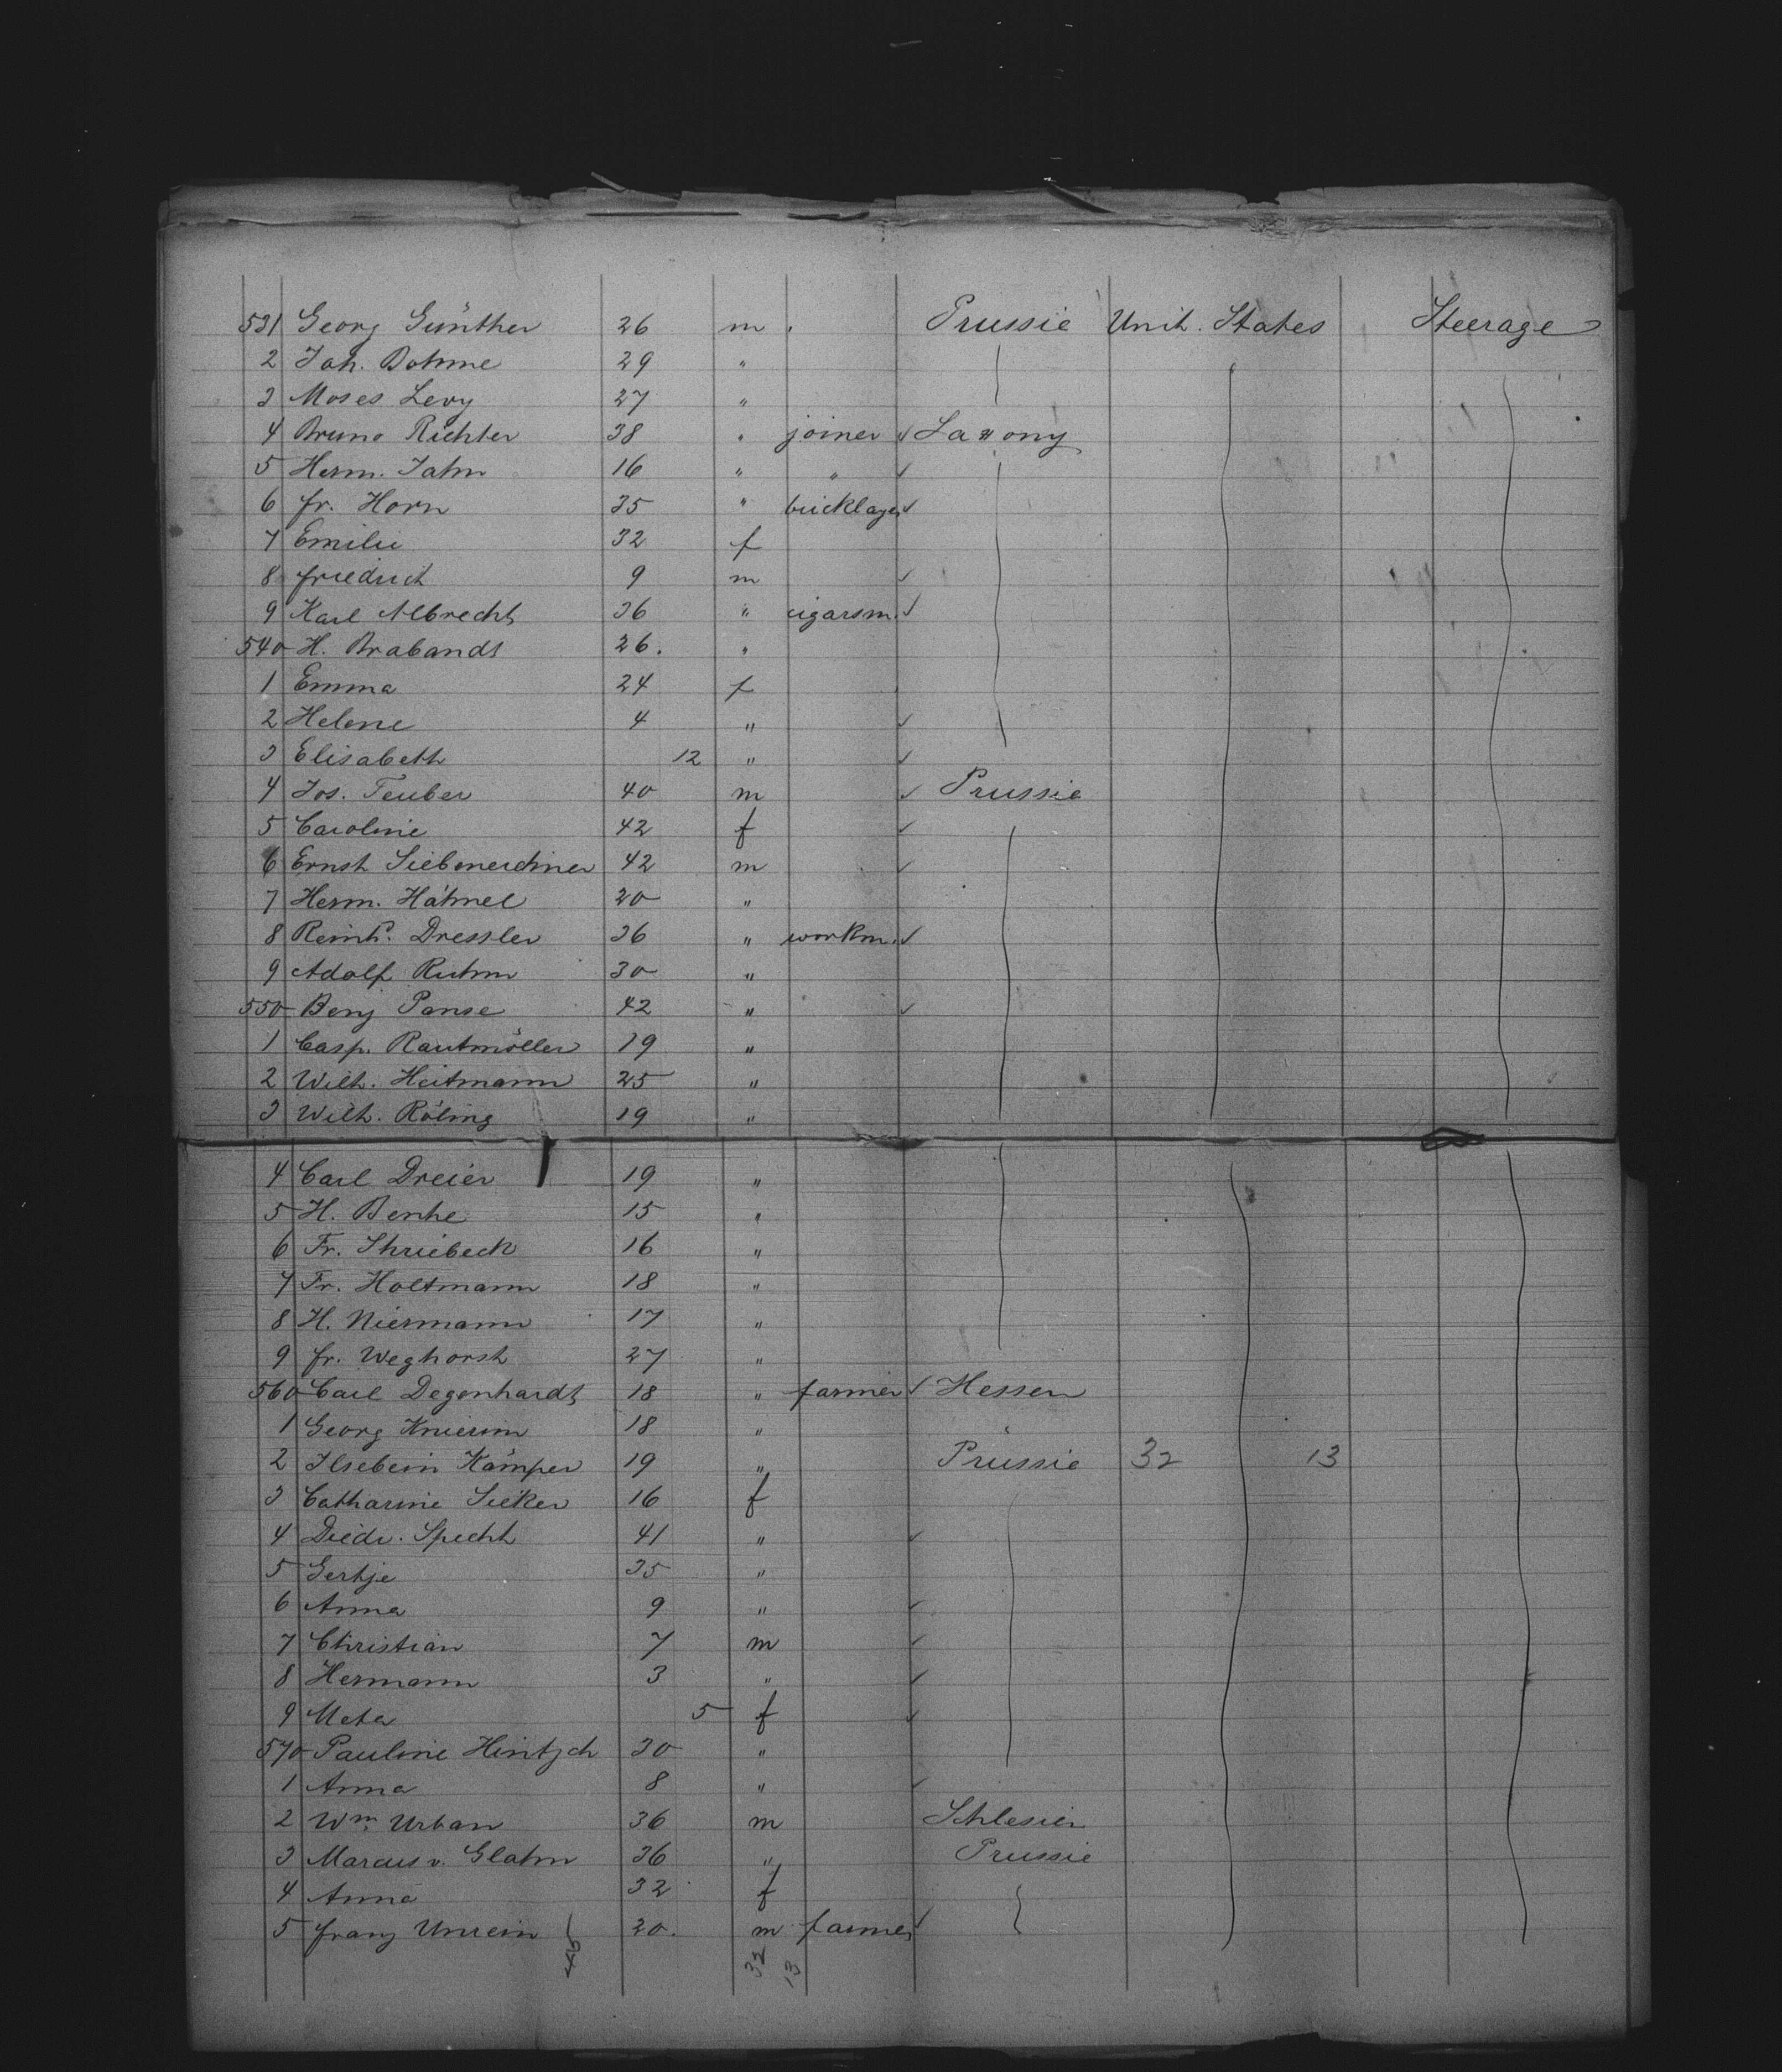 531 Georg Günther 26 m Prussie Unit. States Steerage
2 Joh. Bohme 29 "
3 Moses Levy 27 "
4 Bruno Richter 38 " joiner ✓ Saxony
5 Herm. Jahn 16 " " ✓
6 Fr. Horn 35 " bricklayer ✓
7 Emilie 32 f
8 Friedrich 9 m ✓
9 Karl Albrecht 36 " cigarsm. ✓
540 H. Brabandt 26. "
1 Emma 24 f
2 Helene 4 " ✓
3 Elisabeth 12 " ✓
4 Jos. Teuber 40 m ✓ Prussie
5 Caroline 42 f ✓
6 Ernst 42 m ✓
7 Herm. Hähnel 20 "
8 Reinh. Dressler 36 " workm. ✓
9 Adolf 30 "
550 Benj Panse 42 " ✓
1 Casp. Rautmöller 19 "
2 Wilh. Heitmann 25 "
3 Wilh. Röling 19 "
4 Carl Dreier 19 "
5 H. Benhe 15 "
6 Fr. 16 "
7 Fr. Holtmann 18 "
8 H. Niermann 17 "
9 Fr. Weghorst 27 "
560 Carl Degenhardt 18 " farmer ✓ Hessen
1 Georg Knierim 18 "
2 Ilsebein Kämper 19 " Prussie 32 13
3 Catharine Sieker 16 f
4 Diedr. Specht 41 " ✓
5 Gertje 35 "
6 Anna 9 " ✓
7 Christian 7 m ✓
8 Hermann 3 " ✓
9 Meta 5 f ✓
570 Pauline Hintzch 30 "
1 Anna 8 " ✓
2 Wm. Urban 36 m Schlesien
3 Marcus v. Glahn 36 " Prussie
4 Anna 32 f
5 Franz Unrein 20. m farmer ✓
32
13